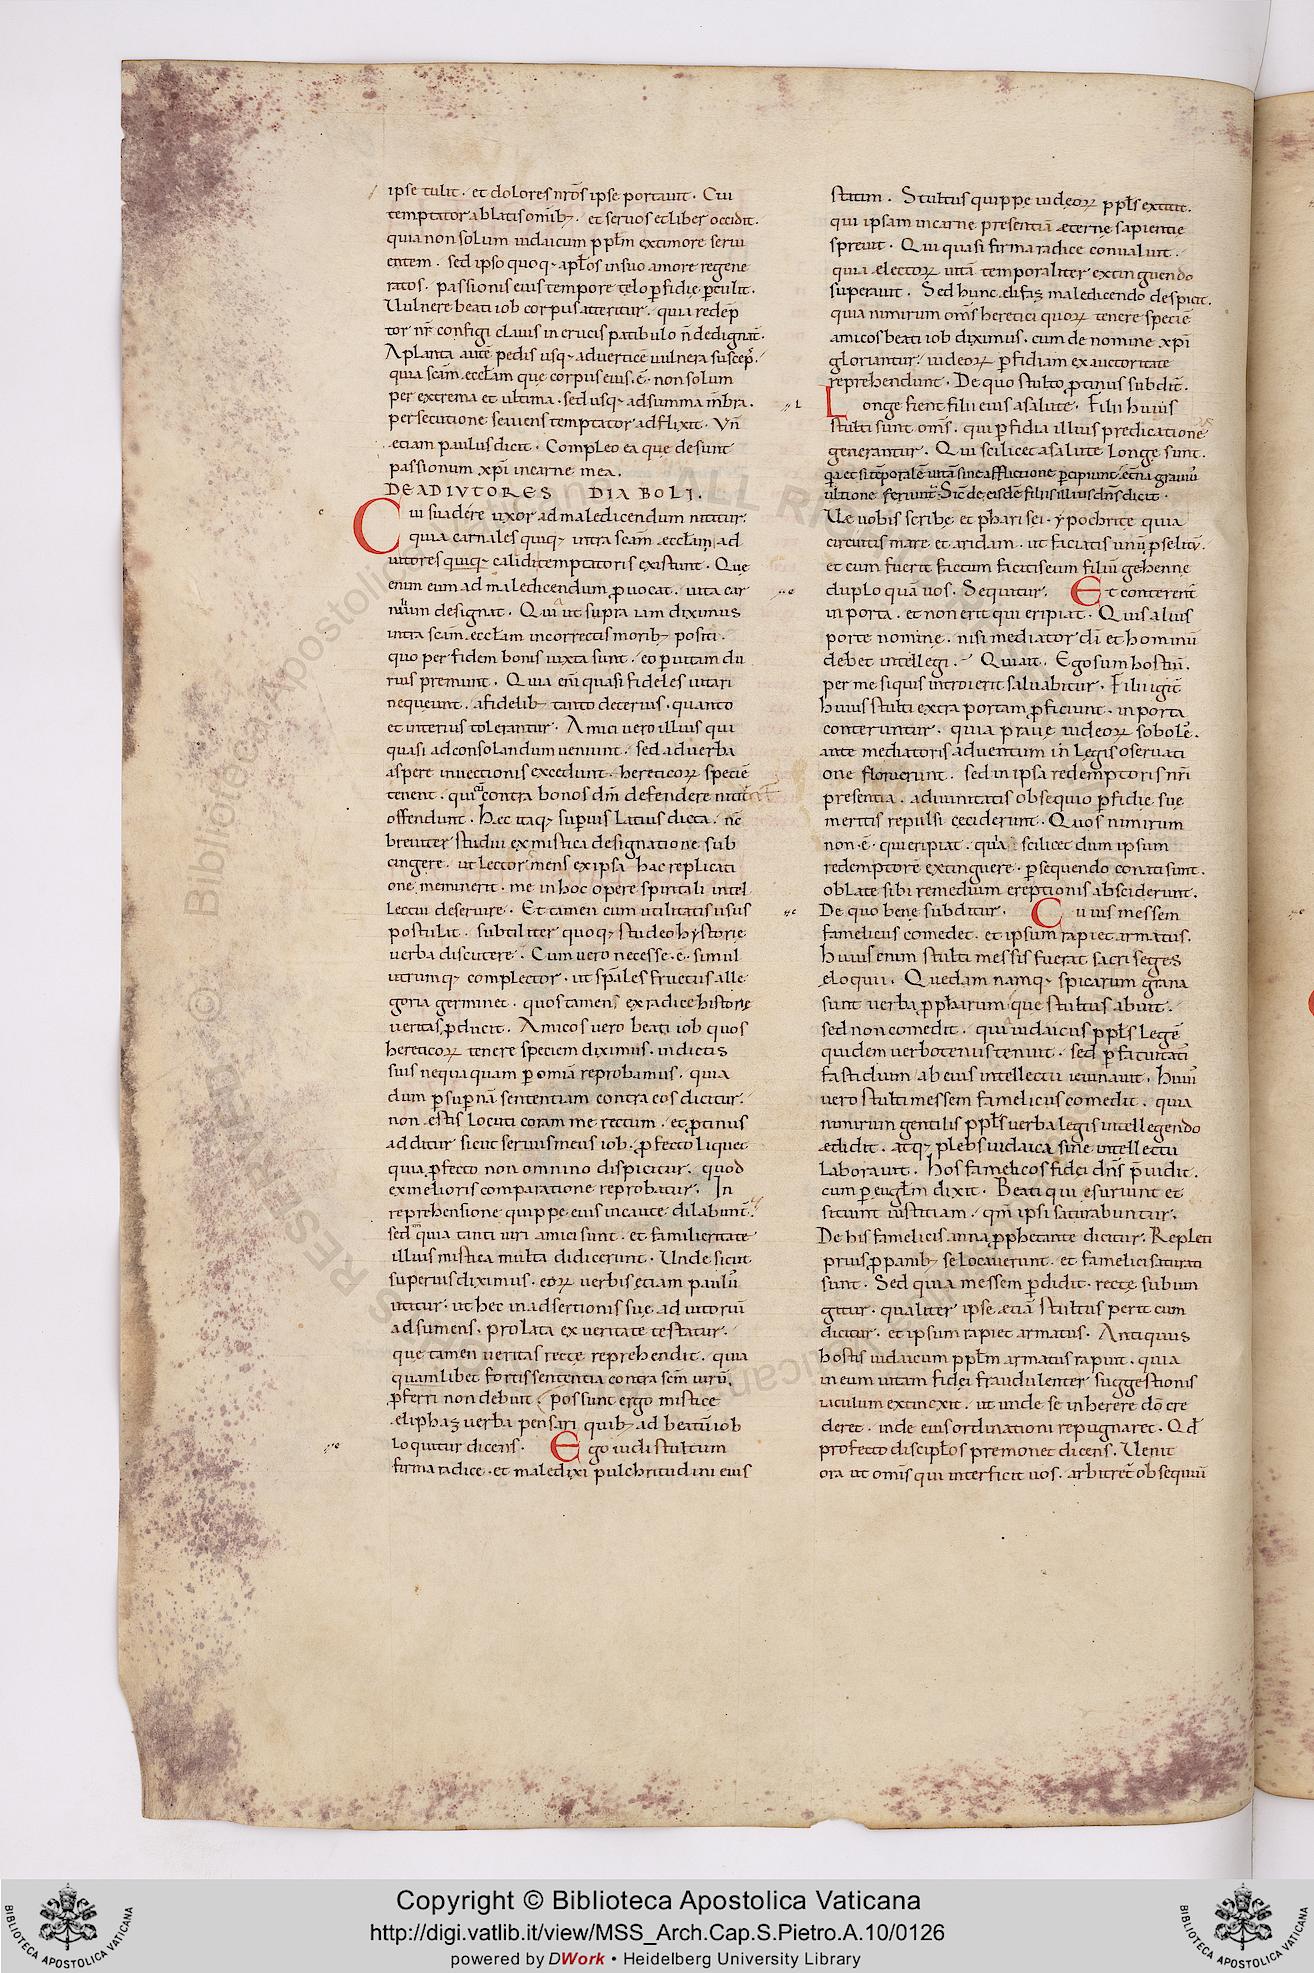 ipse tulit · et dolores nr̄os ipse portavit · Cui
temptator ablatis omīb; · et servos et liber occidit ·
quia non solum iudaicum ppl̄m ex timore servi
entem · sed ipso quoq; apl̄os in suo amore regene
ratos · passionis eius tempore telo ꝑfidię ꝑculit ·
Vulnere beati iob corpus atteritur · quia redēp
tor nr̄ configi clavis in crucis patibulo n̄ dedignat̄ ·
A planta aute pedis usq; ad vertice vulnera suscep̄ ·
quia scām ęccl̄am que corpus eius · ē · non solum
per extrema et ultima · sed usq; ad summa m̄bra ·
persecutione seviens temptator adflixit · Vn̄
etiam paulus dicit · Compleo ea que desunt
passionum xpī in carne mea ·
DE ADIVTORES DIABOLI ·
Cui suadere uxor ad maledicendum nititur ·
quia carnales quiq; intra scām ęccl̄am ad
iutores quiq; calidi temptatoris existunt · Quę
enim eum ad maledicendum ꝓvocat · vita car
nalium designat · Quia ut supra iam diximus
intra scām ęccl̄am incorrectis morib; positi ·
quo per fidem bonis iuxta sunt · eo ꝑ vitam du
rius premunt · Quia enī quasi fideles vitari
nequeunt · a fidelib; tanto deterius · quanto
et interius tolerantur · Amici vero illius qui
quasi ad consolandum veniunt · sed ad verba
aspere invectionis excedunt · hereticoꝝ speciē
tenent · qui contra bonos dm̄ defendere nitūt
offendunt · Hęc itaq; superius latius dicta · nc̄
breviter studui ex mistica designatione sub
cingere · ut lector mens ex ipsa hac replicati
one meminerit · me in hoc opere spiritali intel
lectui deservire · Et tamen cum utilitatis usus
postulat · subtiliter quoq; studeo hystorię
verba discutere · Cum vero necesse · ē · simul
utrumq; complector · ut sp̄ales fructus alle
goria germinet · quos tamen ex radice historię
veritas ꝓducit · Amicos vero beati iob quos
hereticoꝝ tenere speciem diximus · in dictis
suis nequaquam ꝑ omīa reprobamus · quia
dum ꝑ supernā sententiam contra eos dicitur ·
non estis locuti coram me rectum · et ꝓtinus
additur sicut servus meus iob · ꝓfecto liquet
quia ꝓfecto non omnino dispicitur · quod
ex melioris comparatione reprobatur · In
reprehensione quippe eius incaute dilabunt̄ ·
sed quia tanti viri amici sunt · et familieritate
illius mistica multa didicerunt · Unde sicut
superius diximus · eoꝝ verbis etiam paulus
utitur · ut hec in adsertionis suę adiutoriū
adsumens · prolata ex veritate testatur ·
que tamen veritas recte reprehendit · quia
quamlibet fortis sententia contra scm̄ virū ·
ꝓferri non debuit · possunt ergo mistice
eliphaz verba pensari quib; ad beatū iob
loquitur dicens · Ego vidi stultum
firma radice · et maledixi pulchritudini eius
statim · Stultus quippe iudeoꝝ ppl̄s extitit ·
qui ipsam in carne presentiā ęternę sapientię
sprevit · Qui quasi firma radice convaluit ·
quia electoꝝ vitā temporaliter extinguendo
superavit · Sed hunc elifaz maledicendo despicit ·
quia nimirum om̄s heretici quoꝝ tenere speciē
amicos beati iob diximus · cum de nomine xpī
gloriantur · iudeoꝝ ꝑfidiam ex auctoritate
reprehendunt · De quo stulto ꝓtinus subdit̄ ·
Longe fient filii eius a salute · Filii huius
stulti sunt om̄s · qui ꝑfidia illius predicatione
generantur · Qui scilicet a salute longe sunt ·
qa et si tēporalē vitā sine afflictione ꝑcipiunt · ęt̄na graviū
ultione feriunt̄ · Sic̄ de eisdē filiis illius dn̄s dicit ·
Ve vobis scribę et pharisei · ypochrite quia
circuitis mare et aridam · ut faciatis unū ꝓselitū ·
et cum fuerit factum facitis eum filiū gehennę
duplo quā vos · Sequitur · Et conterent̄
in porta · et non erit qui eripiat · Quis alius
porte nomine · nisi mediator dī et hominū
debet intellegi · Qui ait · Ego sum hostiū ·
per me si quis introierit salvabitur · Filii igit̄
huius stulti extra portam ꝓficiunt · in porta
conteruntur · quia pravę iudeoꝝ sobolē ·
ante mediatoris adventum in legis oservati
one floruerunt · sed in ipsa redemptoris nr̄i
presentia · a divinitatis obsequio ꝑfidię suę
meritis repulsi ceciderunt · Quos nimirum
non · ē · qui eripiat · quia scilicet dum ipsum
redemptorē extinguere · ꝑsequendo conati sunt ·
oblate sibi remedium ereptionis absciderunt ·
De quo bene subditur · Cuius messem
famelicus comedet · et ipsum rapiet armatus ·
huius enim stulti messis fuerat sacri seges
eloquii · Quędam namq; spicarum grana
sunt verba ꝓphetarum que stultus abuit ·
sed non comedit · quia iudaicus ppl̄s legē
quidem verbotenus tenuit · sed ꝑ fatuitatē
fastidium ab eius intellectu ieiunavit · Huius
vero stulti messem famelicus comedit · quia
nimirum gentilis ppl̄s verba legis intellegendo
ędidit · atq; plebs iudaica sine intellectu
laboravit · Hos famelicos fidei dn̄s p̄vidit ·
cum ꝑ evgl̄m dixit · Beati qui esuriunt et
sitiunt iustitiam · qm̄ ipsi saturabuntur ·
De his famelicis anna ꝓphetante dicitur · Repleti
prius ꝓ panib; se locaverunt · et famelici saturati
sunt · Sed quia messem ꝑdidit · recte subiun
gitur · qualiter ipse etiā stultus perit cum
dicitur · et ipsum rapiet armatus · Antiquus
hostis iudaicum ppl̄m armatus rapuit · quia
in eum vitam fidei fraudulenter suggestionis
iaculum extincxit · ut unde se inherere dō cre
deret · inde eius ordinationi repugnaret · Qd̄
profecto discipl̄os premonet dicens · Venit
ora ut om̄s qui interficit vos · arbitret̄ obsequiū
Copyright © Biblioteca Apostolica Vaticana
http://digi.vatlib.it/view/MSS_Arch.Cap.S.Pietro.A.10/0126
powered by DWork • Heidelberg University Library
BIBLIOTECA APOSTOLICA VATICANA
BIBLIOTECA APOSTOLICA VATICANA